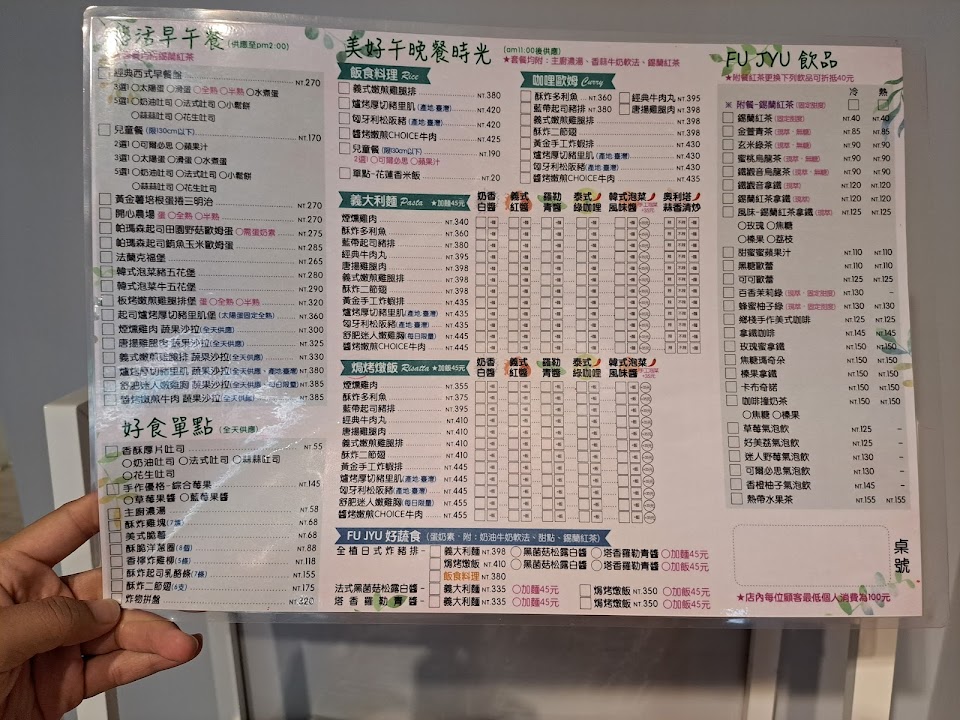 活早午餐 (供應至pm2:00)
經典西式早餐盤 NT.270
3選1 ○太陽蛋 ○滑蛋 ○全熟 ○半熟 ○水煮蛋
5選1 ○奶油吐司 ○法式吐司 ○小鬆餅
○蒜蒜吐司 ○花生吐司
兒童餐 (限130cm以下) NT.170
2選1 ○可爾必思 ○蘋果汁
3選1 ○太陽蛋 ○滑蛋 ○水煮蛋
5選1 ○奶油吐司 ○法式吐司 ○小鬆餅
○蒜蒜吐司 ○花生吐司
黃金薯培根蛋捲三明治 NT.270
開心農場 蛋 ○全熟 ○半熟 NT.270
帕瑪森起司田園野菇歐姆蛋 ○需蛋奶素 NT.275
帕瑪森起司鮪魚玉米歐姆蛋 NT.285
法蘭克福堡 NT.265
韓式泡菜豬五花堡 NT.280
韓式泡菜牛五花堡 NT.290
板烤嫩煎雞腿排堡 蛋 ○全熟 ○半熟 NT.320
起司爐烤厚切豬里肌堡 (太陽蛋固定全熟) NT.360
煙燻雞肉 蔬果沙拉 (全天供應) NT.300
唐揚雞腿肉 蔬果沙拉 (全天供應) NT.325
義式嫩煎雞腿排 蔬果沙拉 (全天供應) NT.330
爐烤厚切豬里肌 蔬果沙拉 (全天供應・產地:臺灣) NT.380
舒肥迷人嫩雞胸 蔬果沙拉 (全天供應・每日限量) NT.385
醬烤嫩煎牛肉 蔬果沙拉 (全天供應) NT.385
好食單點 (全天供應)
香酥厚片吐司 NT.55
○奶油吐司 ○法式吐司 ○蒜蒜吐司
○花生吐司
手作優格-綜合莓果 NT.145
○草莓果醬 ○藍莓果醬
主廚濃湯 NT.58
酥炸雞塊 (7塊) NT.68
美式脆薯 NT.68
酥脆洋蔥圈 (8個) NT.88
香檸炸雞柳 (5條) NT.118
酥炸起司乳酪條 (7條) NT.155
酥炸二節翅 (6支) NT.175
炸物拼盤 NT.320
美好午晚餐時光 (am11:00後供應)
★套餐均附:主廚濃湯、香蒜牛奶軟法、錫蘭紅茶
飯食料理 Rice
義式嫩煎雞腿排 NT.380
爐烤厚切豬里肌 (產地:臺灣) NT.420
匈牙利松阪豬 (產地:臺灣) NT.420
醬烤嫩煎CHOICE牛肉 NT.425
兒童餐 (限130cm以下) NT.190
2選1 ○可爾必思 ○蘋果汁
單點-花蓮香米飯 NT.20
咖哩歐姆 Curry
酥炸多利魚 NT.360 經典牛肉丸 NT.395
藍帶起司豬排 NT.380 唐揚雞腿肉 NT.398
義式嫩煎雞腿排 NT.398
酥炸二節翅 NT.398
黃金手工炸蝦排 NT.430
爐烤厚切豬里肌 (產地:臺灣) NT.430
匈牙利松阪豬 (產地:臺灣) NT.430
醬烤嫩煎CHOICE牛肉 NT.435
義大利麵 Pasta ★加麵45元 奶香白醬 義式紅醬 羅勒青醬 泰式綠咖哩 韓式泡菜風味醬 奧利塔蒜香清炒
煙燻雞肉 NT.340
酥炸多利魚 NT.360
藍帶起司豬排 NT.380
經典牛肉丸 NT.395
唐揚雞腿肉 NT.398
義式嫩煎雞腿排 NT.398
酥炸二節翅 NT.398
黃金手工炸蝦排 NT.435
爐烤厚切豬里肌 (產地:臺灣) NT.435
匈牙利松阪豬 (產地:臺灣) NT.435
舒肥迷人嫩雞胸 (每日限量) NT.445
醬烤嫩煎CHOICE牛肉 NT.445
焗烤燉飯 Risotto ★加飯45元 奶香白醬 義式紅醬 羅勒青醬 泰式綠咖哩 韓式泡菜風味醬
煙燻雞肉 NT.355
酥炸多利魚 NT.375
藍帶起司豬排 NT.395
經典牛肉丸 NT.410
唐揚雞腿肉 NT.410
義式嫩煎雞腿排 NT.410
酥炸二節翅 NT.410
黃金手工炸蝦排 NT.445
爐烤厚切豬里肌 (產地:臺灣) NT.445
匈牙利松阪豬 (產地:臺灣) NT.445
舒肥迷人嫩雞胸 (每日限量) NT.455
醬烤嫩煎CHOICE牛肉 NT.455
FU JYU 好蔬食 (蛋奶素．附：奶油牛奶軟法、甜點、錫蘭紅茶)
全植日式炸豬排- 義大利麵 NT.398 ○黑菌菇松露白醬 ○塔香羅勒青醬 ○加麵45元
焗烤燉飯 NT.410 ○黑菌菇松露白醬 ○塔香羅勒青醬 ○加飯45元
飯食料理 NT.380
法式黑菌菇松露白醬- 義大利麵 NT.335 ○加麵45元 焗烤燉飯 NT.350 ○加飯45元
塔香羅勒青醬- 義大利麵 NT.335 ○加麵45元 焗烤燉飯 NT.350 ○加飯45元
FU JYU 飲品
★附餐紅茶更換下列飲品可折抵40元
冷 熱
附餐-錫蘭紅茶 (固定甜度)
錫蘭紅茶 (固定甜度) NT.40 NT.40
金萱青茶 NT.85 NT.85
玄米綠茶 NT.90 NT.90
蜜桃烏龍茶 NT.90 NT.90
鐵觀音烏龍茶 NT.90 NT.90
鐵觀音拿鐵 NT.120 NT.120
錫蘭紅茶拿鐵 NT.120 NT.120
風味-錫蘭紅茶拿鐵 NT.125 NT.125
○玫瑰 ○焦糖
○榛果 ○荔枝
甜蜜蜜蘋果汁 NT.110 NT.110
黑糖歐蕾 NT.110 NT.110
可可歐蕾 NT.125 NT.125
百香茉莉綠 NT.130 -
蜂蜜柚子綠 NT.130 NT.130
鄉棧手作美式咖啡 NT.125 NT.125
拿鐵咖啡 NT.145 NT.145
玫瑰蜜拿鐵 NT.150 NT.150
焦糖瑪奇朵 NT.150 NT.150
榛果拿鐵 NT.150 NT.150
卡布奇諾 NT.150 NT.150
咖啡撞奶茶 NT.150 NT.150
○焦糖 ○榛果
草莓氣泡飲 NT.125 -
好美荔氣泡飲 NT.125 -
迷人野莓氣泡飲 NT.130 -
可爾必思氣泡飲 NT.130 -
香橙柚子氣泡飲 NT.145 -
熱帶水果茶 NT.155 NT.155
桌號
★店內每位顧客最低個人消費為100元